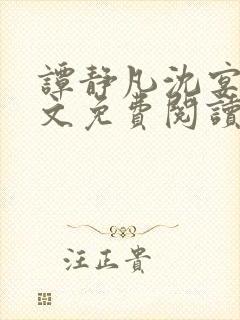 譚靜凡沈宴
文免費閱讀
汪正貴